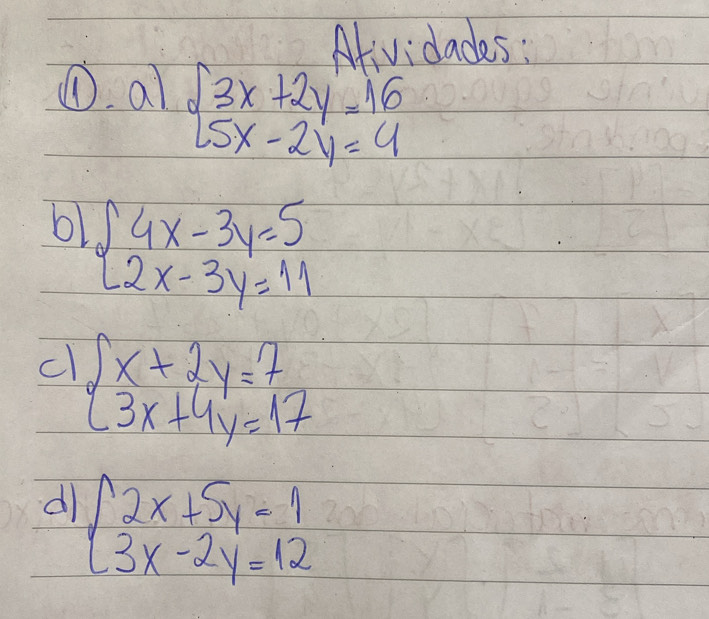 Atividades:
①. a) { 3x + 2y = 16
5x - 2y = 4
b) { 4x - 3y = 5
2x - 3y = 11
c) { x + 2y = 7
3x + 4y = 17
d) { 2x + 5y = 1
3x - 2y = 12